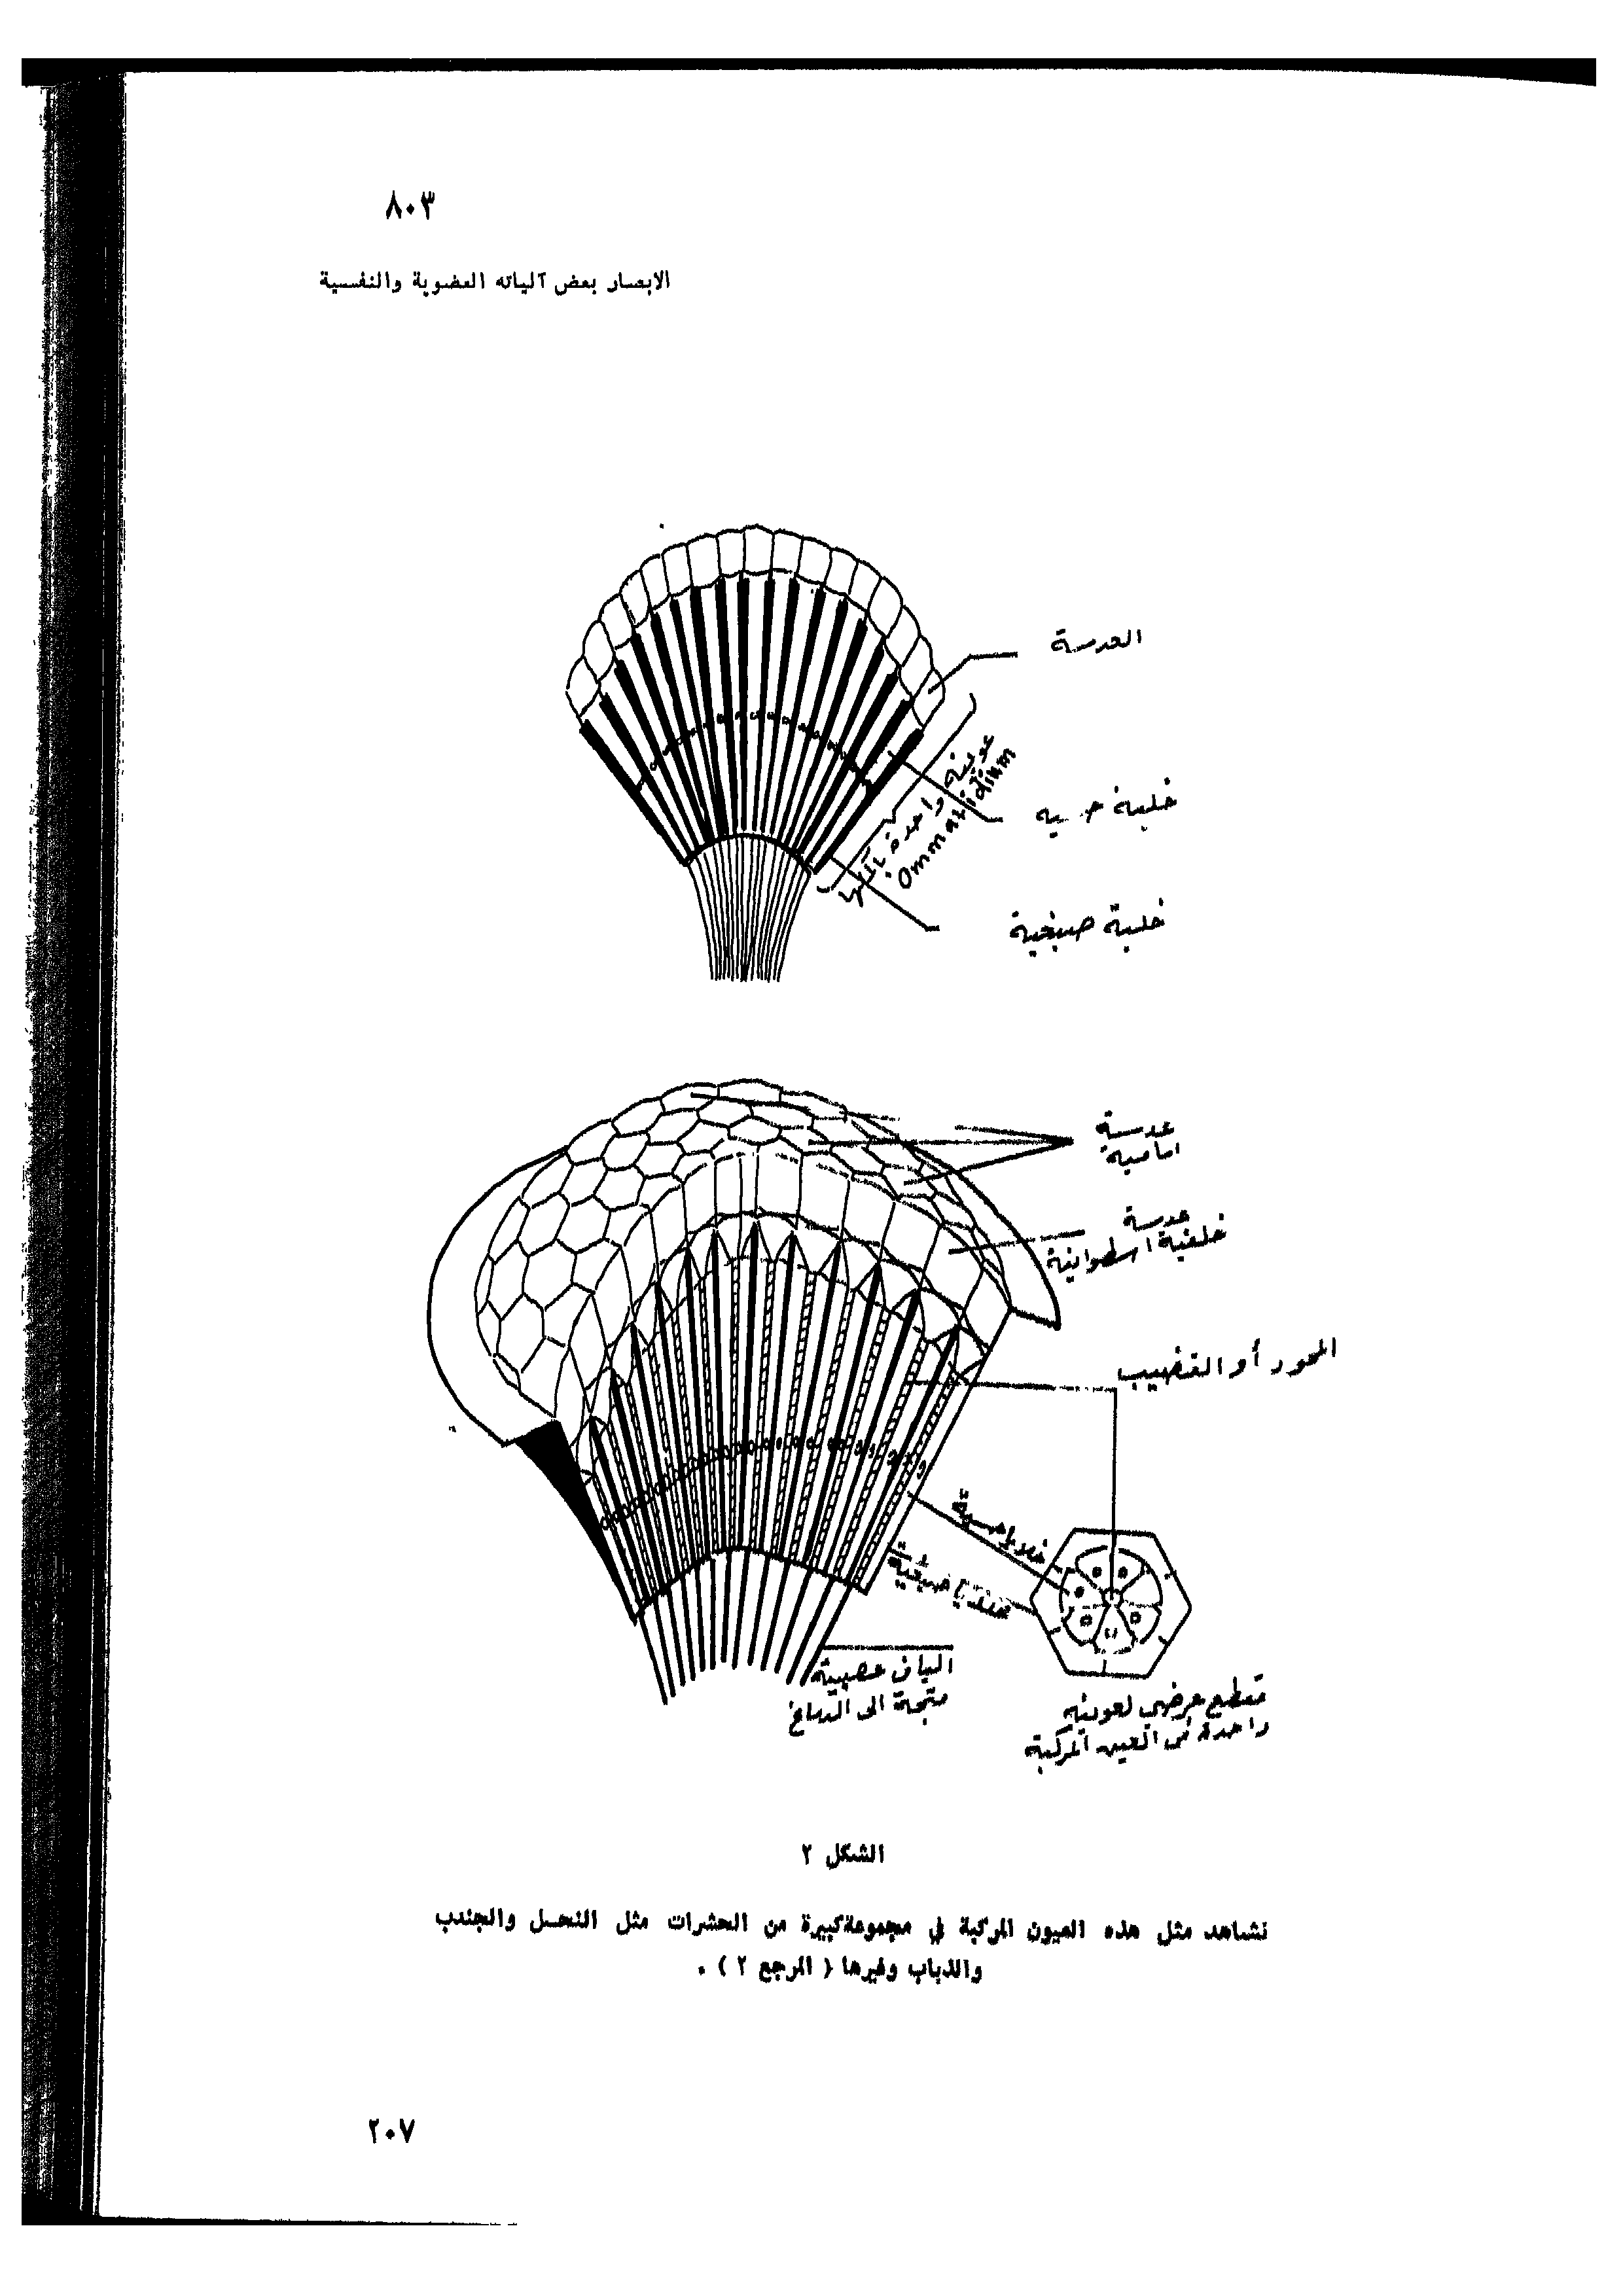 ٨٠٣
الابصار بعض آلياته العضوية والنفسية
العدسة
عوينة واحدة بأكملها
Ommatidium
خلية حسية
خلية صبغية
عدسة
امامية
عدسة
خلفية اسطوانية
المحور أو القضيب
خلايا حسية
خلايا صبغية
الياف عصبية
متجهة الى الدماغ
مقطع عرضي لعوينة
واحدة في العين المركبة
الشكل ٢
نشاهد مثل هذه العيون المركبة في مجموعة كبيرة من الحشرات مثل النحل والجندب
والذباب وغيرها ( المرجع ٢ ) .
٢٠٧